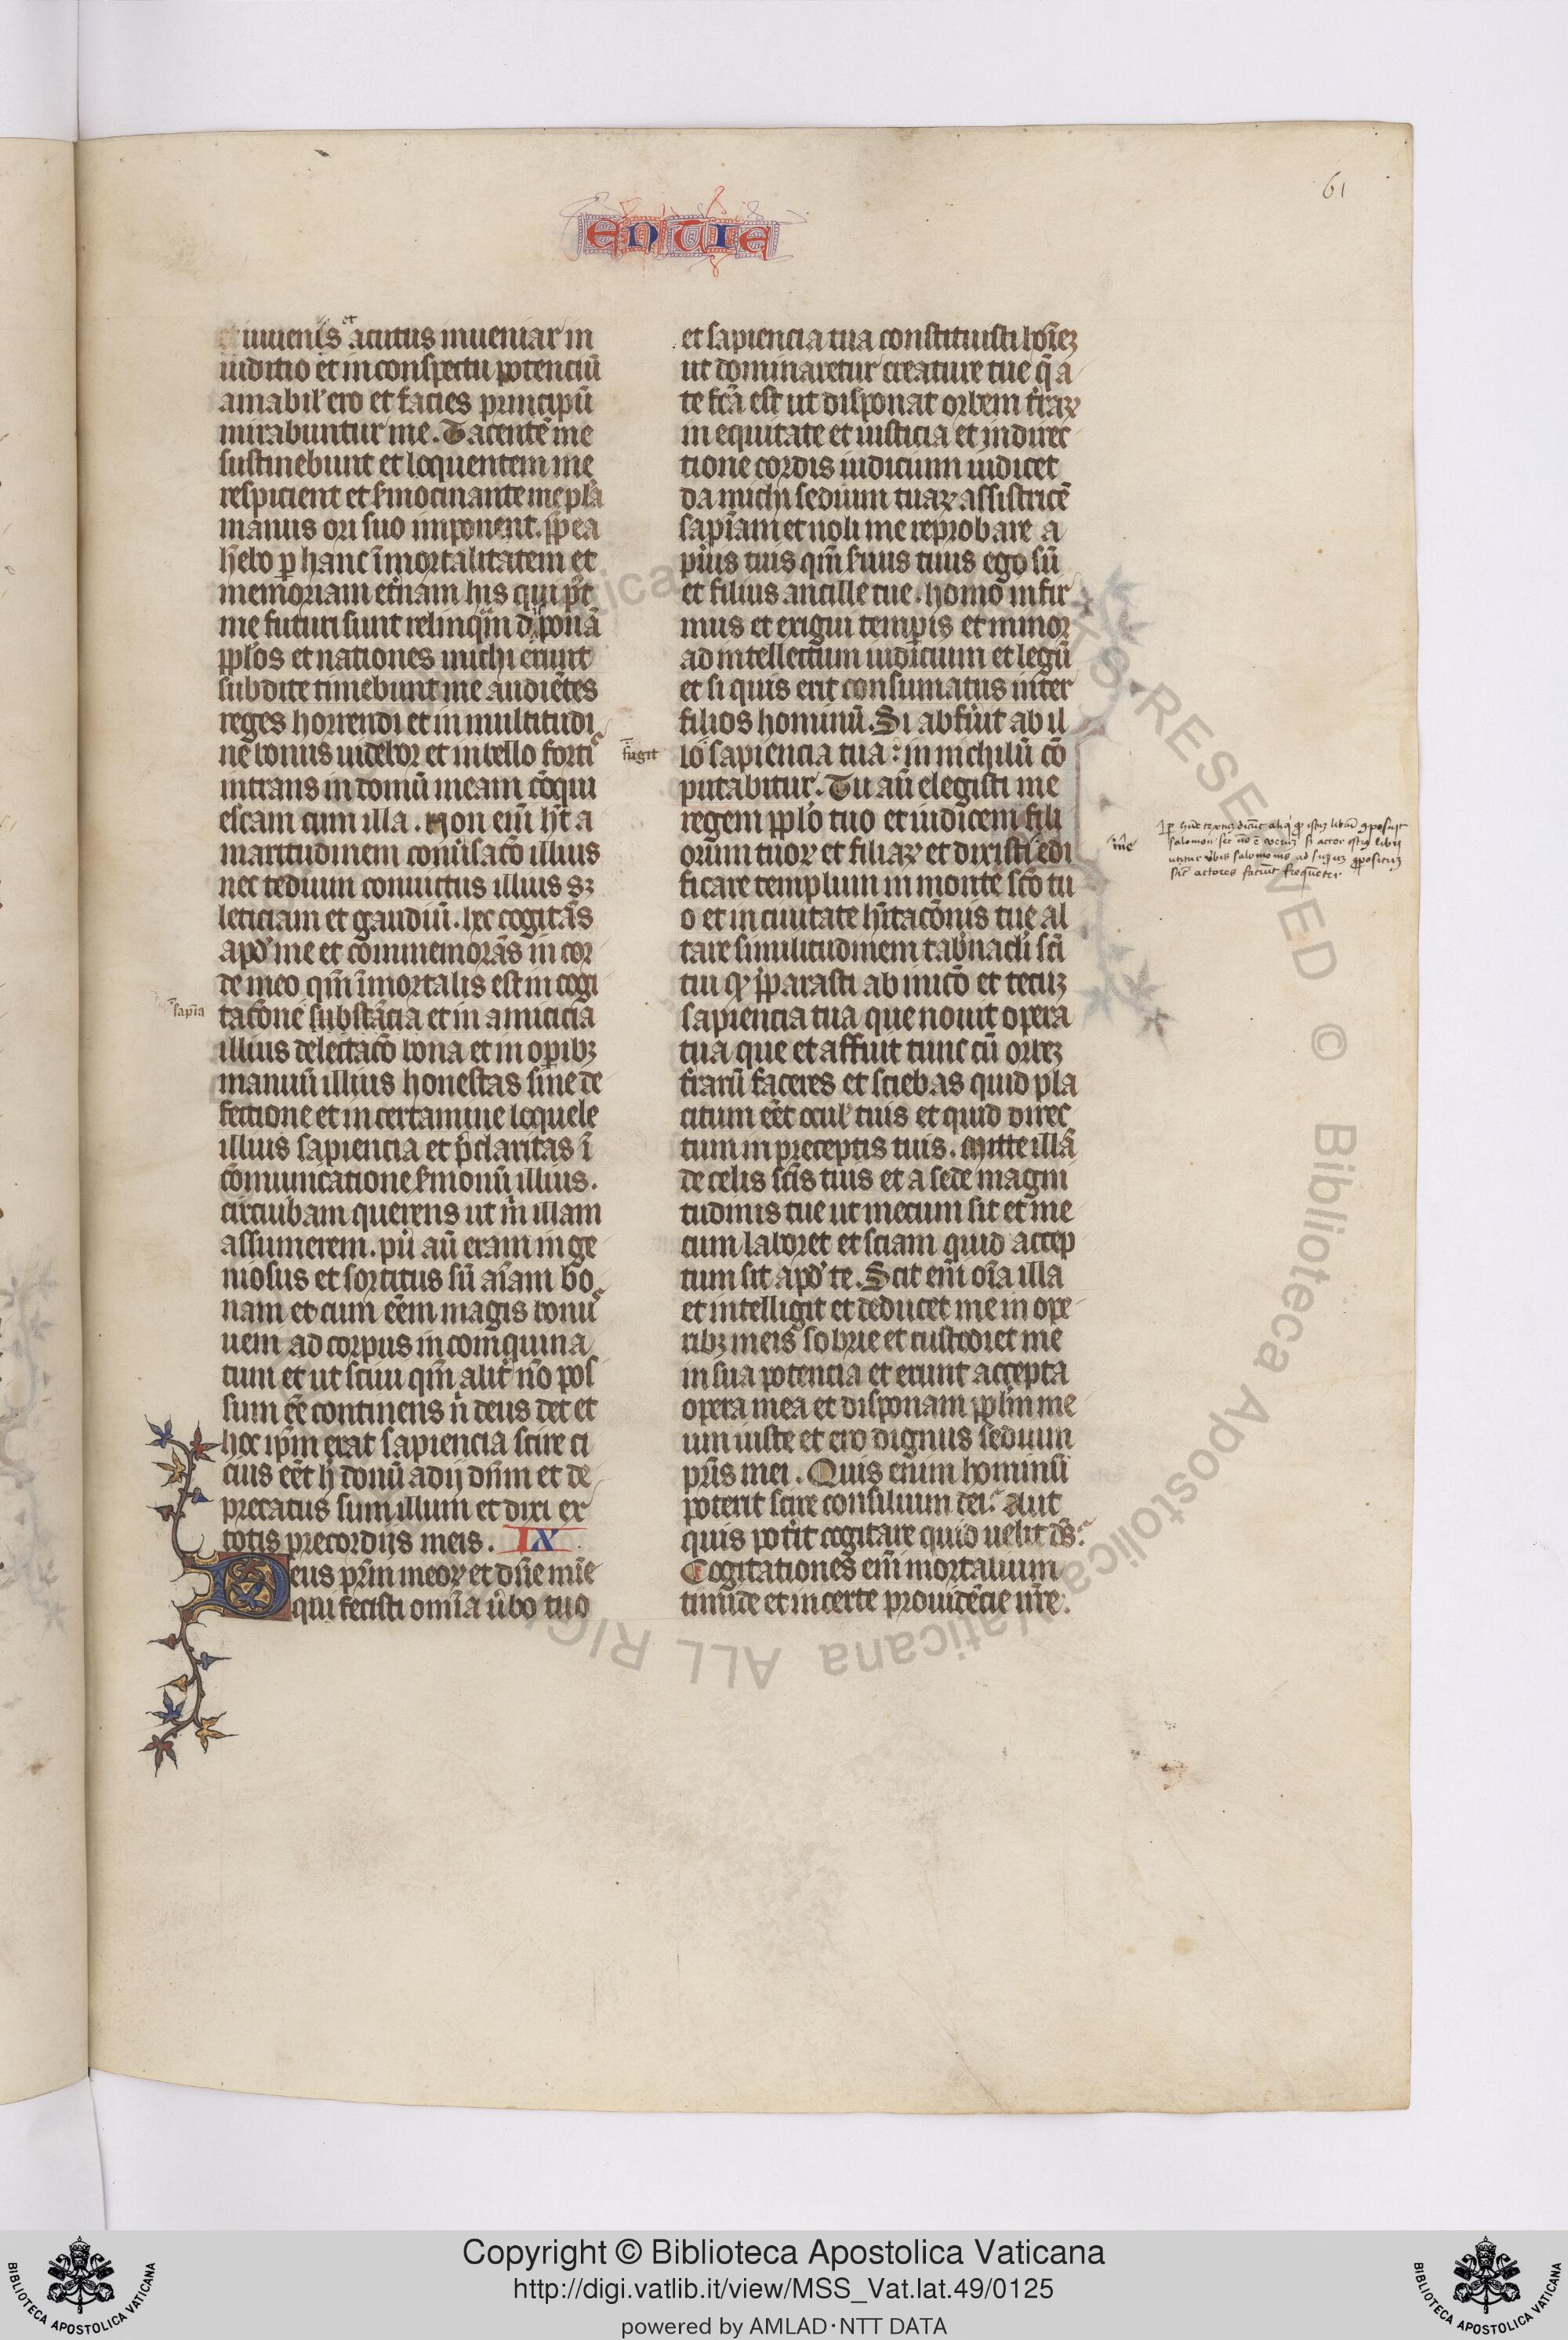 61
ENTIE
et iuuenis et acutus inueniar in
iuditio et in conspectu potenciū
amabil' ero et facies principū
mirabuntur me. Tacentē me
sustinebunt et loquentem me
respicient et s̄mocinante me pla
manus ori suo imponent. p̄p ea
h̄ebo p hanc īmortalitatem et
memoriam et̄nam his qui p̄t
me futuri sunt relinqm̄ disponā
pplos et nationes michi erunt
subdite timebunt me audiētes
reges horrendi et in multitudi
ne bonus uidebor et in bello forti
intrans in domū meam cōqui
escam cum illa. Non eni h̄t a
maritudinem conūsacō illius
nec tedium conuictus illius sꝫ
leticiam et gaudiū. hec cogitās
apd' me et commemorās in cor
de meo qm̄ īmortalis est in cogi
tacōne sapīa substācia et in amicicia
illius delectacō bona et in opibꝫ
manuū illius honestas sine de
fectione et in certamine loquele
illius sapiencia et p̄claritas ī
cōmunicatione s̄monū illius.
circuibam querens ut m̄ illam
assumerem. pū aū eram inge
niosus et sortitus sū aīam bo
nam et cum eēm magis bonu
uem ad corpus incoinquina
tum et ut sciui qm̄ alit̄ nō pos
sum eē continens n̄ deus det et
hoc ipm̄ erat sapiencia scire cu
cius eēt h̄ donū adij dn̄m et de
precatus sum illum et dixi ex
totis precordijs meis. IX
Deus prm̄ meoꝝ et dn̄e mīe
qui fecisti omīa ūbo tuo
et sapiencia tua constituisti hōīeꝫ
ut dominaretur creature tue q̄ a
te fcā est ut disponat orbem t̄raꝝ
in equitate et iusticia et in direc
tione cordis iudicium iudicet
da michi sedium tuaꝝ assistricē
sapīam et noli me reprobare a
pūis tuis qm̄ s̄uus tuus ego sū
et filius ancille tue. homo infir
mus et exigui tempis et minor
ad intellectum iudicium et legū
et si quis erit consumatus inter
filios hominū. Si abfūit ab il
fugit
lo sapiencia tua: in nichilū cō
putabitur. Tu aū elegisti me
regem pplo tuo et iudicem fili
orum tuoꝝ et filiaꝝ et dixisti me edi
ficare templum in monte scō tu
o et in ciuitate hītacōnis tue al
tare similitudinem tab̄nacli sci
tui qꝫ p̄parasti ab inicō et tecuꝫ
sapiencia tua que nouit opera
tua que et affuit tunc cū orbeꝫ
t̄rarū faceres et sciebas quid pla
citum eēt ocul' tuis et quid direc
tum in preceptis tuis. Mitte illā
de celis scīs tuis et a sede magni
tudinis tue ut mecum sit et me
cum laboret et sciam quid accep
tum sit apd' te. Scit eni oīa illa
et intelligit et deducet me in ope
ribꝫ meis sobrie et custodiet me
in sua potencia et erunt accepta
opera mea et disponam pplm̄ me
um iuste et ero dignus sedium
prīs mei. Quis enim hominū
poterit scire consilium dei: aut
quis pot̄it cogitare quid uelit ds̄:
Cogitationes eni mortalium
timide et incerte prouidēcie nr̄e.
Copyright © Biblioteca Apostolica Vaticana
http://digi.vatlib.it/view/MSS_Vat.lat.49/0125
powered by AMLAD·NTT DATA
BIBLIOTECA APOSTOLICA VATICANA
BIBLIOTECA APOSTOLICA VATICANA